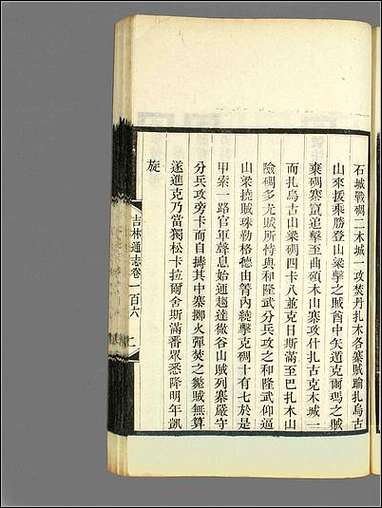 石城戰碉二木城一攻焚丹扎木各寨賊踰扎烏古
山來援乘勝登山梁擊之賊酋中矢遁克爾瑪之賊
棄碉寨竄追擊至曲碩木山寨攻什扎古克木城一
而扎烏古山梁碉四卡八並克日斯滿至巴扎木山
險碉多尤賊所恃與和隆武分兵攻之和隆武仰逼
山梁撓賊珠勒格德由箐內繞擊克大碉十有七於是
甲索一路官軍聲息始通趨達撒谷山賊列寨嚴守
分兵攻旁卡而自擣其中寨擲火彈焚之斃賊無算
遂進克乃當獨松卡拉爾舍斯滿番眾悉降明年凱
旋
吉林通志卷一百六